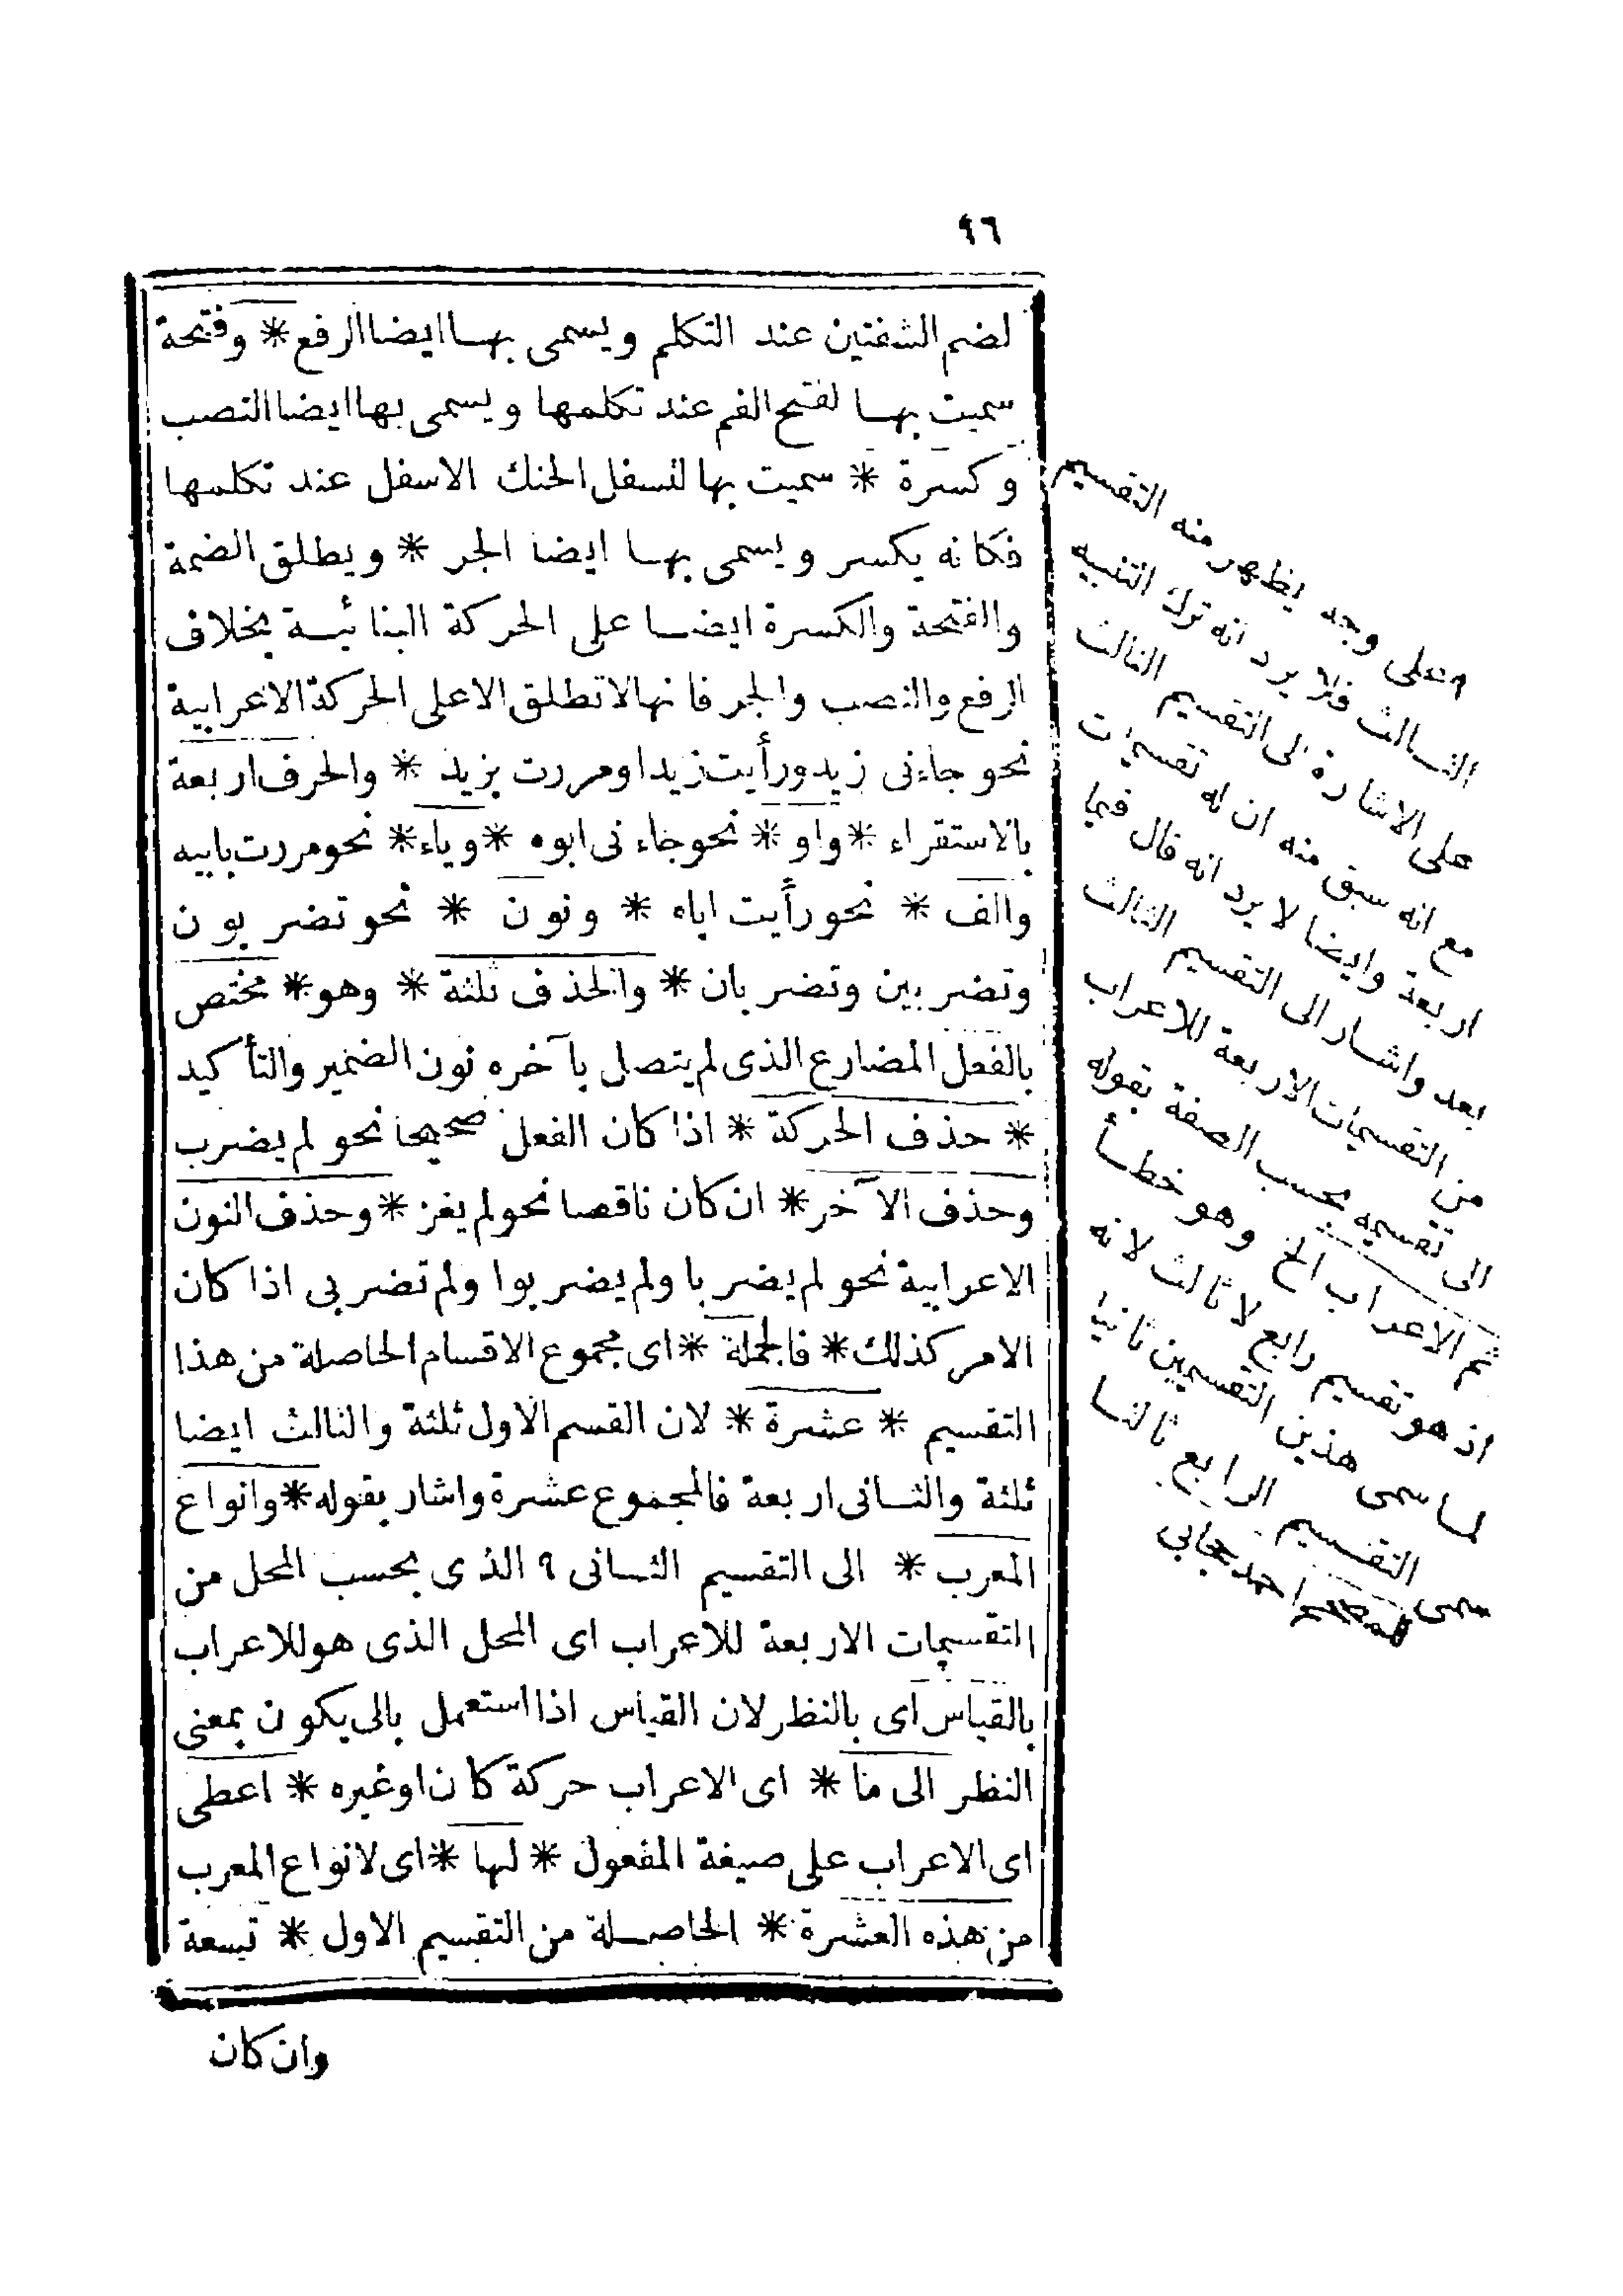 ٩٦
لضم الشفتين عند التكلم ويسمى بها ايضا الرفع * وفتحة
سميت بها لفتح الفم عند تكلمها ويسمى بها ايضا النصب
وكسرة * سميت بها لتسفل الحنك الاسفل عند تكلمها
فكانه يكسر ويسمى بها ايضا الجر * ويطلق الضمة
والفتحة والكسرة ايضا على الحركة البنائية بخلاف
الرفع والنصب والجر فانها لاتطلق الاعلى الحركة الاعرابية
نحو جاءنى زيد ورأيت زيدا ومررت بزيد * والحرف اربعة
بالاستقراء * واو * نحو جاءنى ابوه * وياء * نحو مررت بابيه
والف * نحو رأيت اباه * ونون * نحو تضربون
وتضربين وتضربان * والحذف ثلثة * وهو * مختص
بالفعل المضارع الذى لم يتصل بآخره نون الضمير والتأكيد
* حذف الحركة * اذا كان الفعل صحيحا نحو لم يضرب
وحذف الآخر * ان كان ناقصا نحو لم يغز * وحذف النون
الاعرابية نحو لم يضربا ولم يضربوا ولم تضربى اذا كان
الامر كذلك * فالجملة * اى مجموع الاقسام الحاصلة من هذا
التقسيم * عشرة * لان القسم الاول ثلثة والثالث ايضا
ثلثة والثانى اربعة فالمجموع عشرة واشار بقوله * وانواع
المعرب * الى التقسيم الثانى ٩ الذى بحسب المحل من
التقسيمات الاربعة للاعراب اى المحل الذى هو للاعراب
بالقياس اى بالنظر لان القياس اذا استعمل بالى يكون بمعنى
النظر الى ما * اى الاعراب حركة كان اوغيره * اعطى
اى الاعراب على صيغة المفعول * لها * اى لانواع المعرب
من هذه العشرة * الحاصلة من التقسيم الاول * تسعة
وان كان
٩ على وجه يظهر منه التقسيم
الثالث فلا يرد انه ترك التنبيه
على الاشارة الى التقسيم الثالث
مع انه سبق منه ان له تقسيمات
اربعة وايضا لا يرد انه قال فيما
بعد واشار الى التقسيم الثالث
من التقسيمات الاربعة للاعراب
الى تقسيمه بحسب الصفة بقوله
ثم الاعراب الخ وهو خطأ
اذ هو تقسيم رابع لا ثالث لانه
لما سمى هذين التقسيمين ثانيا
سمى التقسيم الرابع ثالثا
احمد